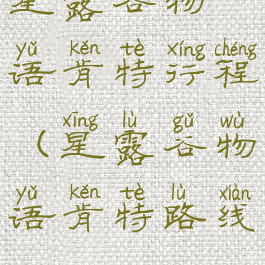 星露谷物
yǔ kěn tè xíng chéng
语肯特行程
xīng lù gǔ wù
（星露谷物
yǔ kěn tè lù xiàn
语肯特路线